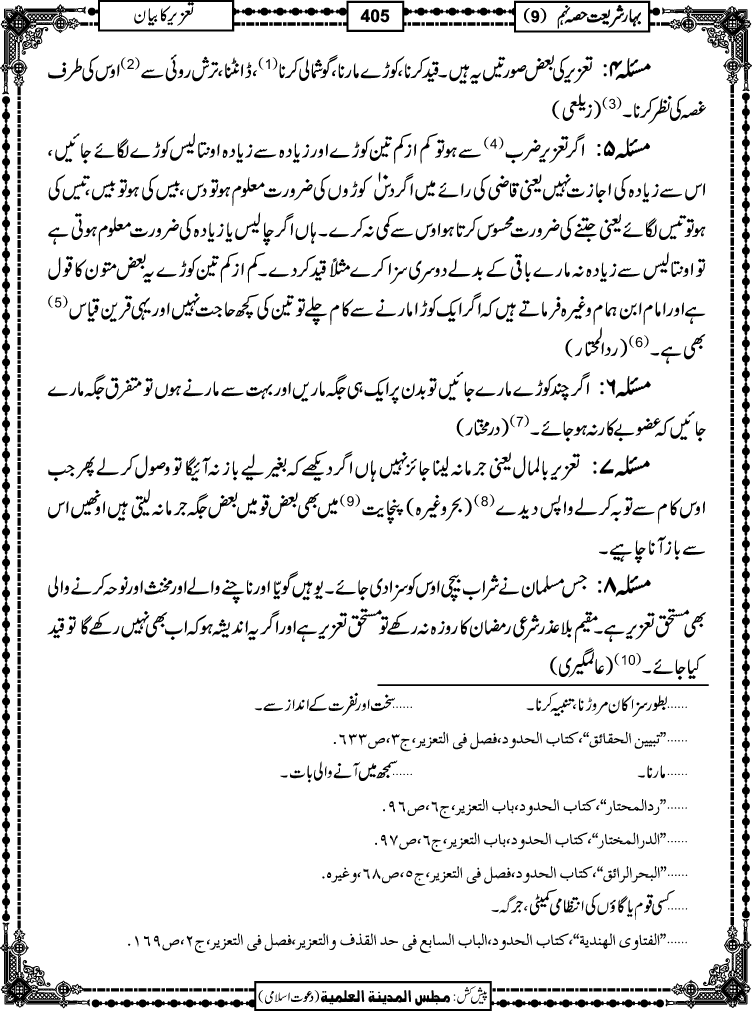 بہار شریعت حصہ نہم (9)
405
تعزیر کا بیان
مسئلہ ۴: تعزیر کی بعض صورتیں یہ ہیں۔ قید کرنا، کوڑے مارنا، گوشمالی کرنا(1)، ڈانٹنا، ترش روئی سے(2) اوس کی طرف
غصہ کی نظر کرنا۔(3) (زیلعی)
مسئلہ ۵: اگر تعزیر ضرب(4) سے ہو تو کم از کم تین کوڑے اور زیادہ سے زیادہ اونتالیس کوڑے لگائے جائیں،
اس سے زیادہ کی اجازت نہیں یعنی قاضی کی رائے میں اگر دس کوڑوں کی ضرورت معلوم ہو تو دس، بیس کی ہو تو بیس، تیس کی
ہو تو تیس لگائے یعنی جتنے کی ضرورت محسوس کرتا ہو اوس سے کمی نہ کرے۔ ہاں اگر چالیس یا زیادہ کی ضرورت معلوم ہوتی ہے
تو اونتالیس سے زیادہ نہ مارے باقی کے بدلے دوسری سزا کرے مثلاً قید کر دے۔ کم از کم تین کوڑے یہ بعض متون کا قول
ہے اور امام ابن ہمام وغیرہ فرماتے ہیں کہ اگر ایک کوڑا مارنے سے کام چلے تو تین کی کچھ حاجت نہیں اور یہی قرین قیاس(5)
بھی ہے۔(6) (ردالمحتار)
مسئلہ ۶: اگر چند کوڑے مارے جائیں تو بدن پر ایک ہی جگہ ماریں اور بہت سے مارنے ہوں تو متفرق جگہ مارے
جائیں کہ عضو بے کار نہ ہو جائے۔(7) (درمختار)
مسئلہ ۷: تعزیر بالمال یعنی جرمانہ لینا جائز نہیں ہاں اگر دیکھے کہ بغیر لیے باز نہ آئیگا تو وصول کر لے پھر جب
اوس کام سے توبہ کر لے واپس دیدے(8) (بحر وغیرہ) پنچایت(9) میں بھی بعض قومیں بعض جگہ جرمانہ لیتی ہیں اونھیں اس
سے باز آنا چاہیے۔
مسئلہ ۸: جس مسلمان نے شراب بیچی اوس کو سزا دی جائے۔ یوہیں گویّا اور ناچنے والے اور مخنث اور نوحہ کرنے والی
بھی مستحق تعزیر ہے۔ مقیم بلا عذر شرعی رمضان کا روزہ نہ رکھے تو مستحق تعزیر ہے اور اگر یہ اندیشہ ہو کہ اب بھی نہیں رکھے گا تو قید
کیا جائے۔(10) (عالمگیری)
......بطور سزا کان مروڑنا، تنبیہ کرنا۔ ......سخت اور نفرت کے انداز سے۔
......”تبیین الحقائق“، کتاب الحدود، فصل فی التعزیر، ج۳، ص۶۳۳.
......مارنا۔ ......سمجھ میں آنے والی بات۔
......”ردالمحتار“، کتاب الحدود، باب التعزیر، ج۶، ص۹۶.
......”الدرالمختار“، کتاب الحدود، باب التعزیر، ج۶، ص۹۷.
......”البحرالرائق“، کتاب الحدود، فصل فی التعزیر، ج۵، ص۶۸، وغیرہ.
......کسی قوم یا گاؤں کی انتظامی کمیٹی، جرگہ۔
......”الفتاوی الھندیۃ“، کتاب الحدود، الباب السابع فی حد القذف والتعزیر، فصل فی التعزیر، ج۲، ص۱۶۹.
پیش کش: مجلس المدینۃ العلمیۃ (دعوت اسلامی)